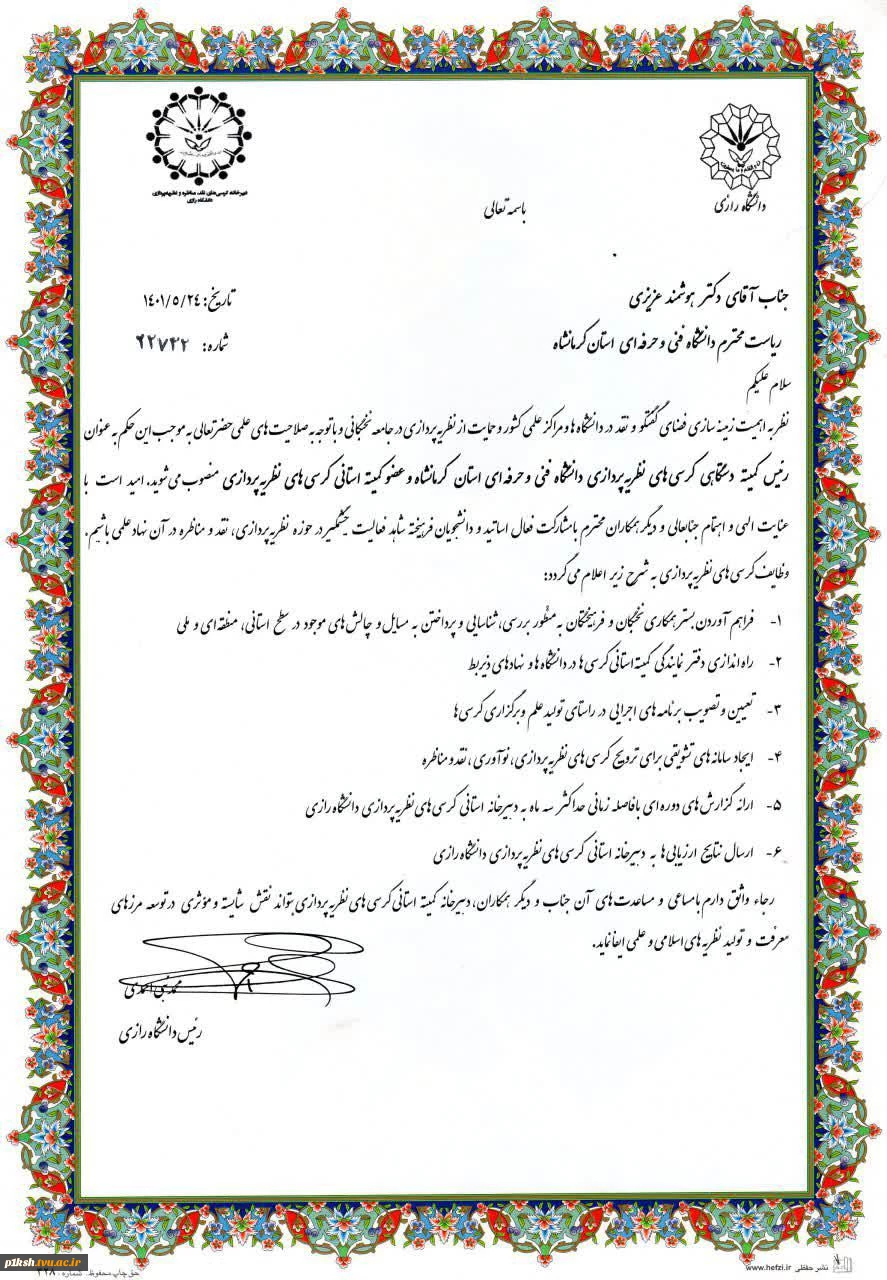 دبیرخانه کرسی‌های نقد، مناظره و نظریه‌پردازی
دانشگاه رازی
دانشگاه رازی
باسمه تعالی
جناب آقای دکتر هوشمند عزیزی
تاریخ: ۱۴۰۱/۵/۲۴
ریاست محترم دانشگاه فنی و حرفه ای استان کرمانشاه
شماره: ۲۲۷۴۲
سلام علیکم
نظر به اهمیت زمینه سازی فضای گفتگو و نقد در دانشگاه ها و مراکز علمی کشور و حمایت از نظریه پردازی در جامعه نخبگانی و با توجه به صلاحیت های علمی حضرتعالی به موجب این حکم به عنوان
رئیس کمیته دستگاهی کرسی های نظریه پردازی دانشگاه فنی و حرفه ای استان کرمانشاه و عضو کمیته استانی کرسی های نظریه پردازی منصوب می شوید. امید است با
عنایت الهی و اهتمام جنابعالی و دیگر همکاران محترم با مشارکت فعال اساتید و دانشجویان فرهیخته شاهد فعالیت چشمگیر در حوزه نظریه پردازی، نقد و مناظره در آن نهاد علمی باشیم.
وظایف کرسی های نظریه پردازی به شرح زیر اعلام می گردد:
۱- فراهم آوردن بستر همکاری نخبگان و فرهیختگان به منظور بررسی، شناسایی و پرداختن به مسایل و چالش های موجود در سطح استانی، منطقه ای و ملی
۲- راه اندازی دفتر نمایندگی کمیته استانی کرسی ها در دانشگاه ها و نهادهای ذیربط
۳- تعیین و تصویب برنامه های اجرایی در راستای تولید علم و برگزاری کرسی ها
۴- ایجاد سامانه های تشویقی برای ترویج کرسی های نظریه پردازی، نوآوری، نقد و مناظره
۵- ارائه گزارش های دوره ای با فاصله زمانی حداکثر سه ماه به دبیرخانه استانی کرسی های نظریه پردازی دانشگاه رازی
۶- ارسال نتایج ارزیابی ها به دبیرخانه استانی کرسی های نظریه پردازی دانشگاه رازی
رجاء واثق دارم با مساعی و مساعدت های آن جناب و دیگر همکاران، دبیرخانه کمیته استانی کرسی های نظریه پردازی بتواند نقش شایسته و مؤثری در توسعه مرزهای
معرفت و تولید نظریه های اسلامی و علمی ایفا نماید.
محمد نبی احمدی
رئیس دانشگاه رازی
نشر حفظی www.hefzi.ir
p1ksh.tvu.ac.ir
حق چاپ محفوظ. شماره